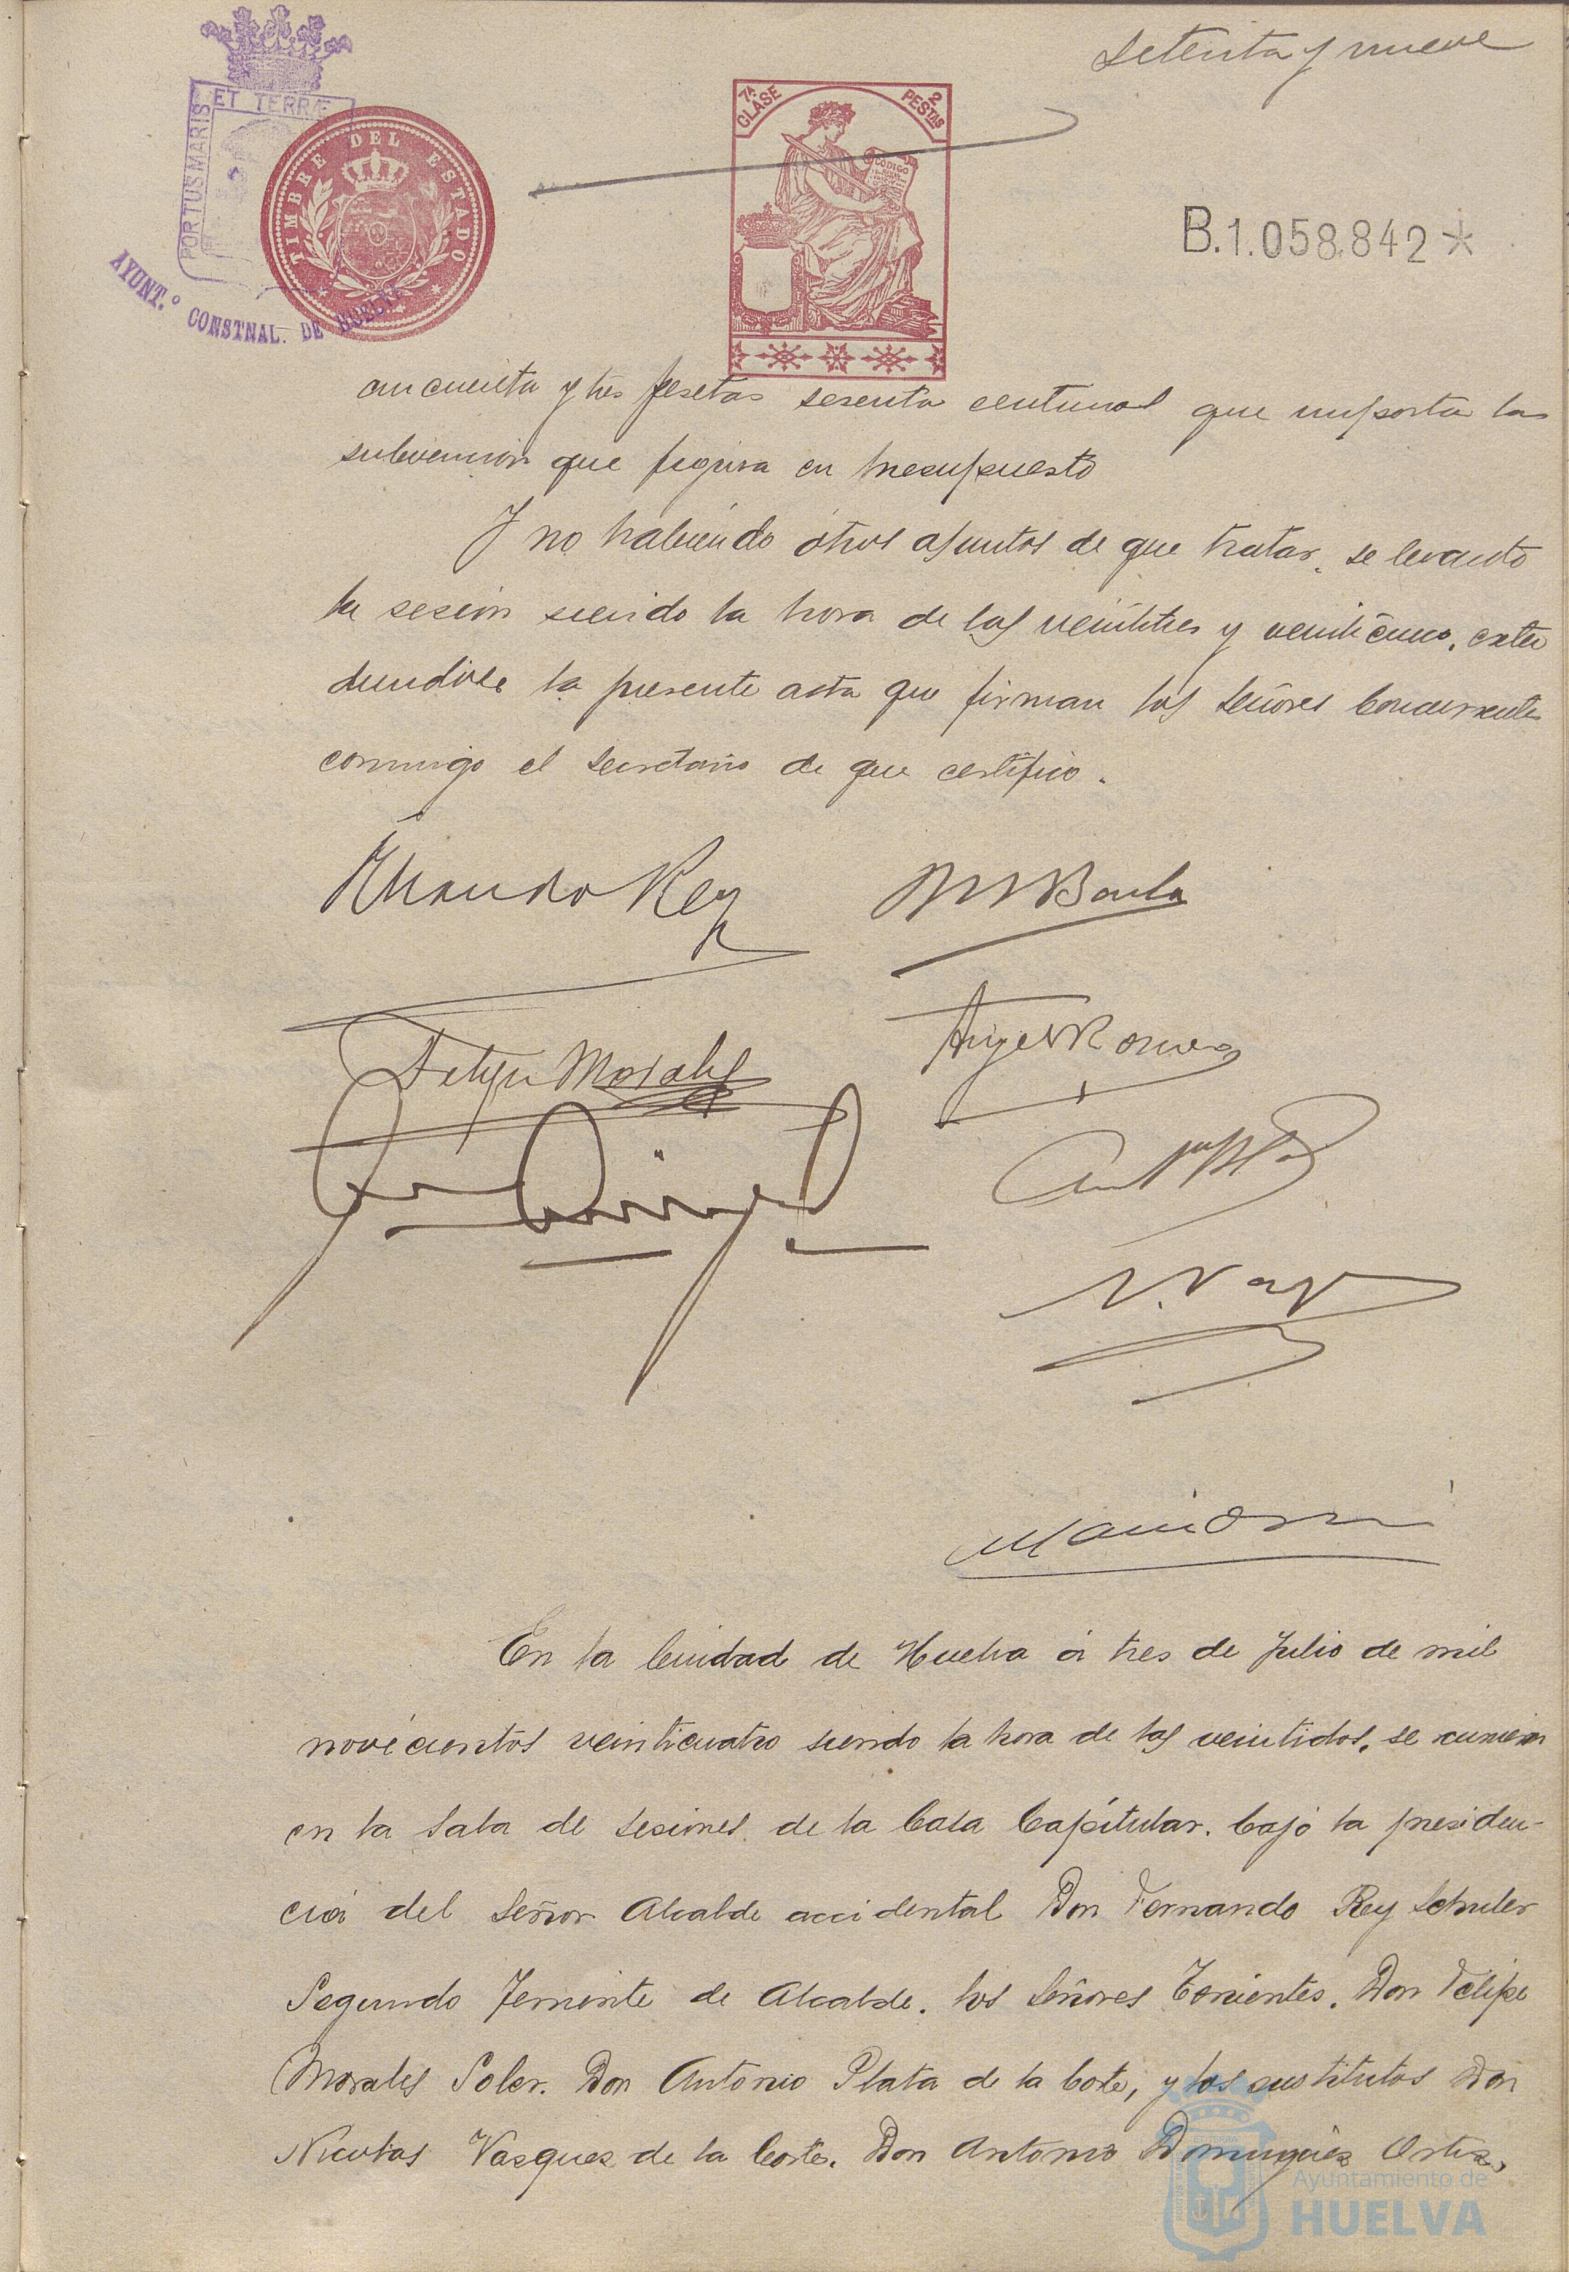 Setenta y nueve
PORTUS MARIS ET TERRÆ
AYUNT.º CONSTNAL. DE HUELVA
TIMBRE DEL ESTADO
7ª CLASE
2 PESTAS
CODIGO
B.1.058.842*
cincuenta y tres pesetas sesenta centimos que importa la
subvencion que figura en presupuesto
Y no habiendo otros asuntos de que tratar, se levanto
la sesion siendo la hora de las veintitres y veinticinco, exten
diendose la presente acta que firman los Señores Concurrentes
conmigo el Secretario de que certifico.
Fernando Rey
Felipe Morales
Angel Romero
En la Ciudad de Huelva á tres de Julio de mil
novecientos veinticuatro siendo la hora de las veintidos, se reunieron
en la Sala de Sesiones de la Casa Capitular, bajo la presiden-
cia del Señor Alcalde accidental Don Fernando Rey Schuler
Segundo Teniente de Alcalde, los Señores Tenientes, Don Felipe
Morales Soler, Don Antonio Plata de la Corte, y los sustitutos Don
Nicolas Vazquez de la Corte, Don Antonio Dominguez Ortiz,
Ayuntamiento de
HUELVA